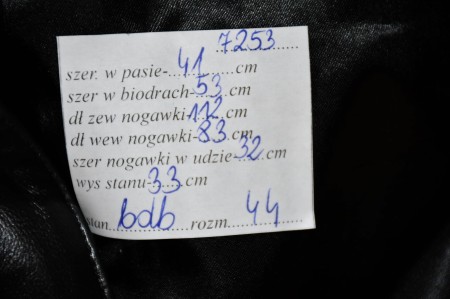 7253
szer. w pasie-41cm
szer w biodrach-53cm
dł zew nogawki-112cm
dł wew nogawki-83cm
szer nogawki w udzie-32cm
wys stanu-33cm
stan bdb rozm. 44